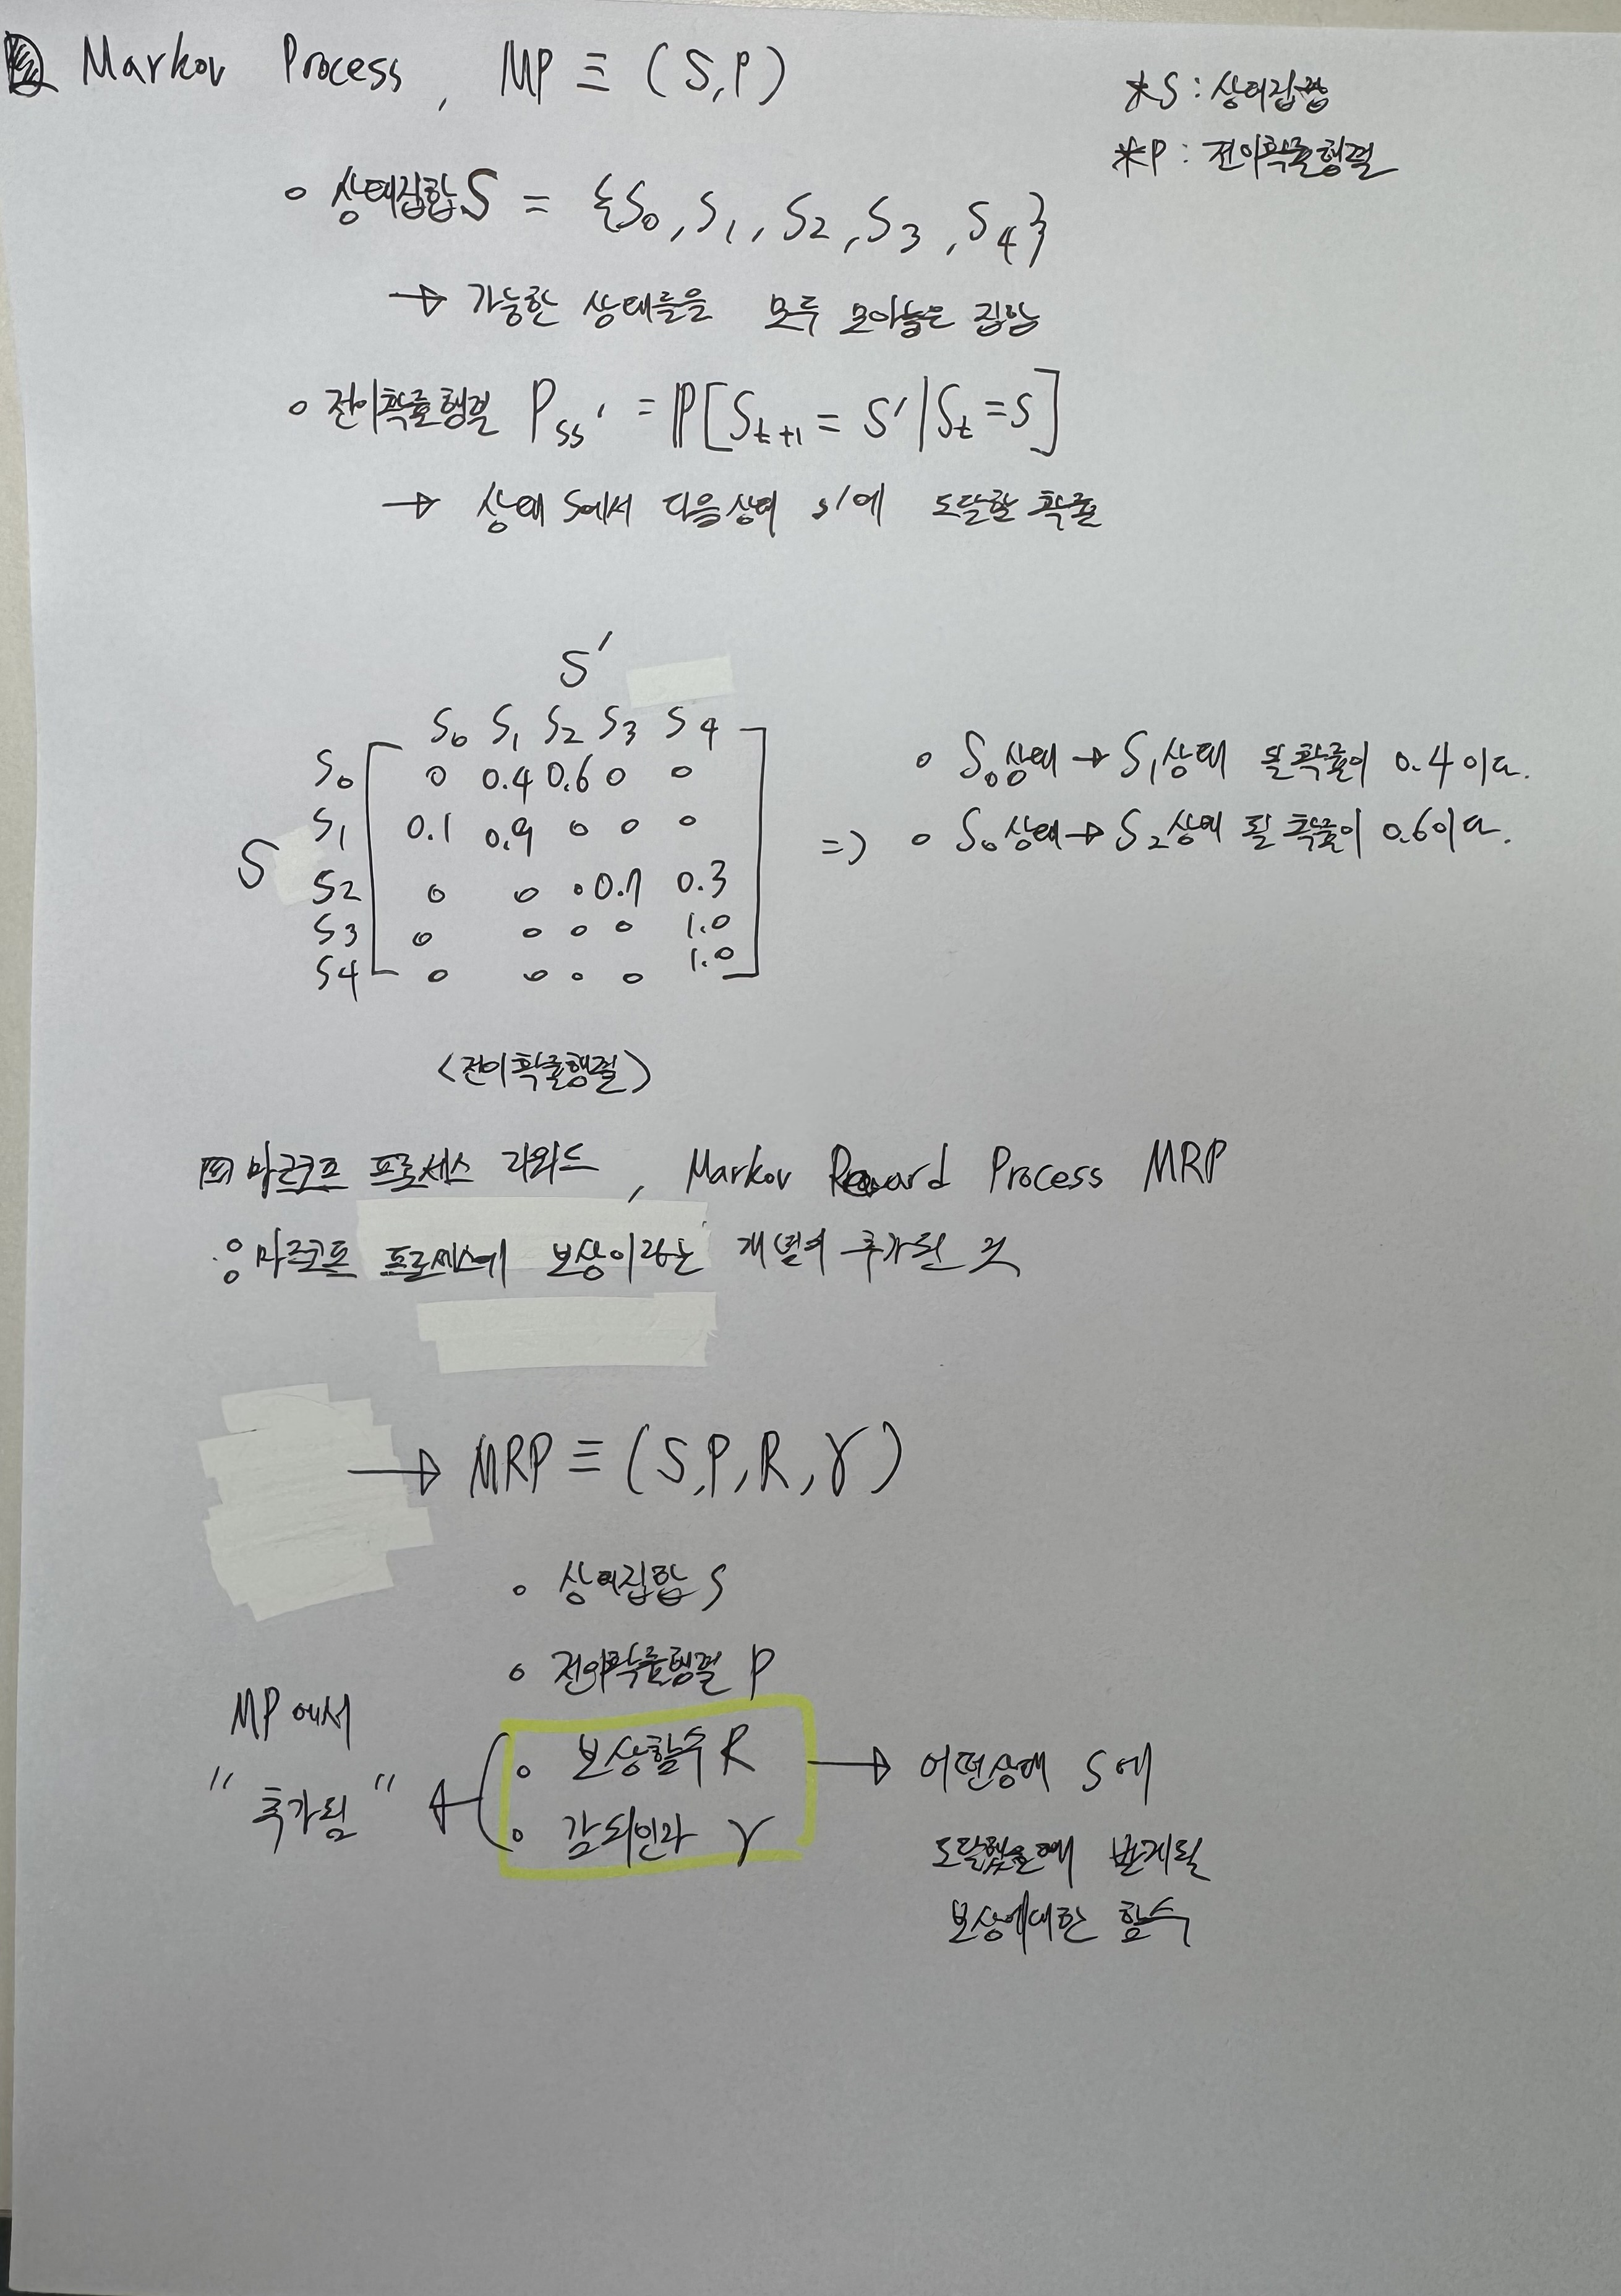 Markov Process, MP ≡ (S, P)
*S : 상태집합
*P : 전이확률행렬
◦ 상태집합 S = {S0, S1, S2, S3, S4}
→ 가능한 상태들을 모두 모아놓은 집합
◦ 전이확률행렬 Pss' = ℙ[St+1 = S' | St = S]
→ 상태 S에서 다음상태 s'에 도달할 확률
S'
S0 S1 S2 S3 S4
S0 0 0.4 0.6 0 0
S1 0.1 0.9 0 0 0
S
S2 0 0 0 0.7 0.3
S3 0 0 0 0 1.0
S4 0 0 0 0 1.0
⇒
◦ S0상태 → S1상태 될 확률이 0.4이다.
◦ S0상태 → S2상태 될 확률이 0.6이다.
<전이확률행렬>
마르코프 프로세스 리워드, Markov Reward Process MRP
: 마르코프 프로세스에 보상이라는 개념이 추가된 것
→ MRP ≡ (S, P, R, γ)
◦ 상태집합 S
◦ 전이확률행렬 P
◦ 보상함수 R
◦ 감쇠인자 γ
MP에서
"추가됨"
→ 어떤상태 S에
도달했을때 받게될
보상에대한 함수